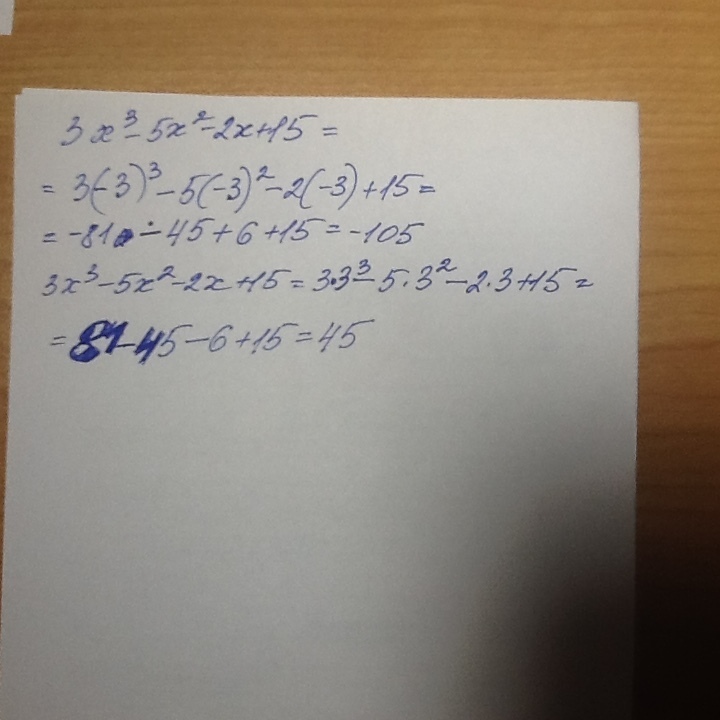 3x³-5x²-2x+15=
= 3(-3)³-5(-3)²-2(-3)+15=
= -81-45+6+15=-105
3x³-5x²-2x+15=3·3³-5·3²-2·3+15=
= 81-45-6+15=45